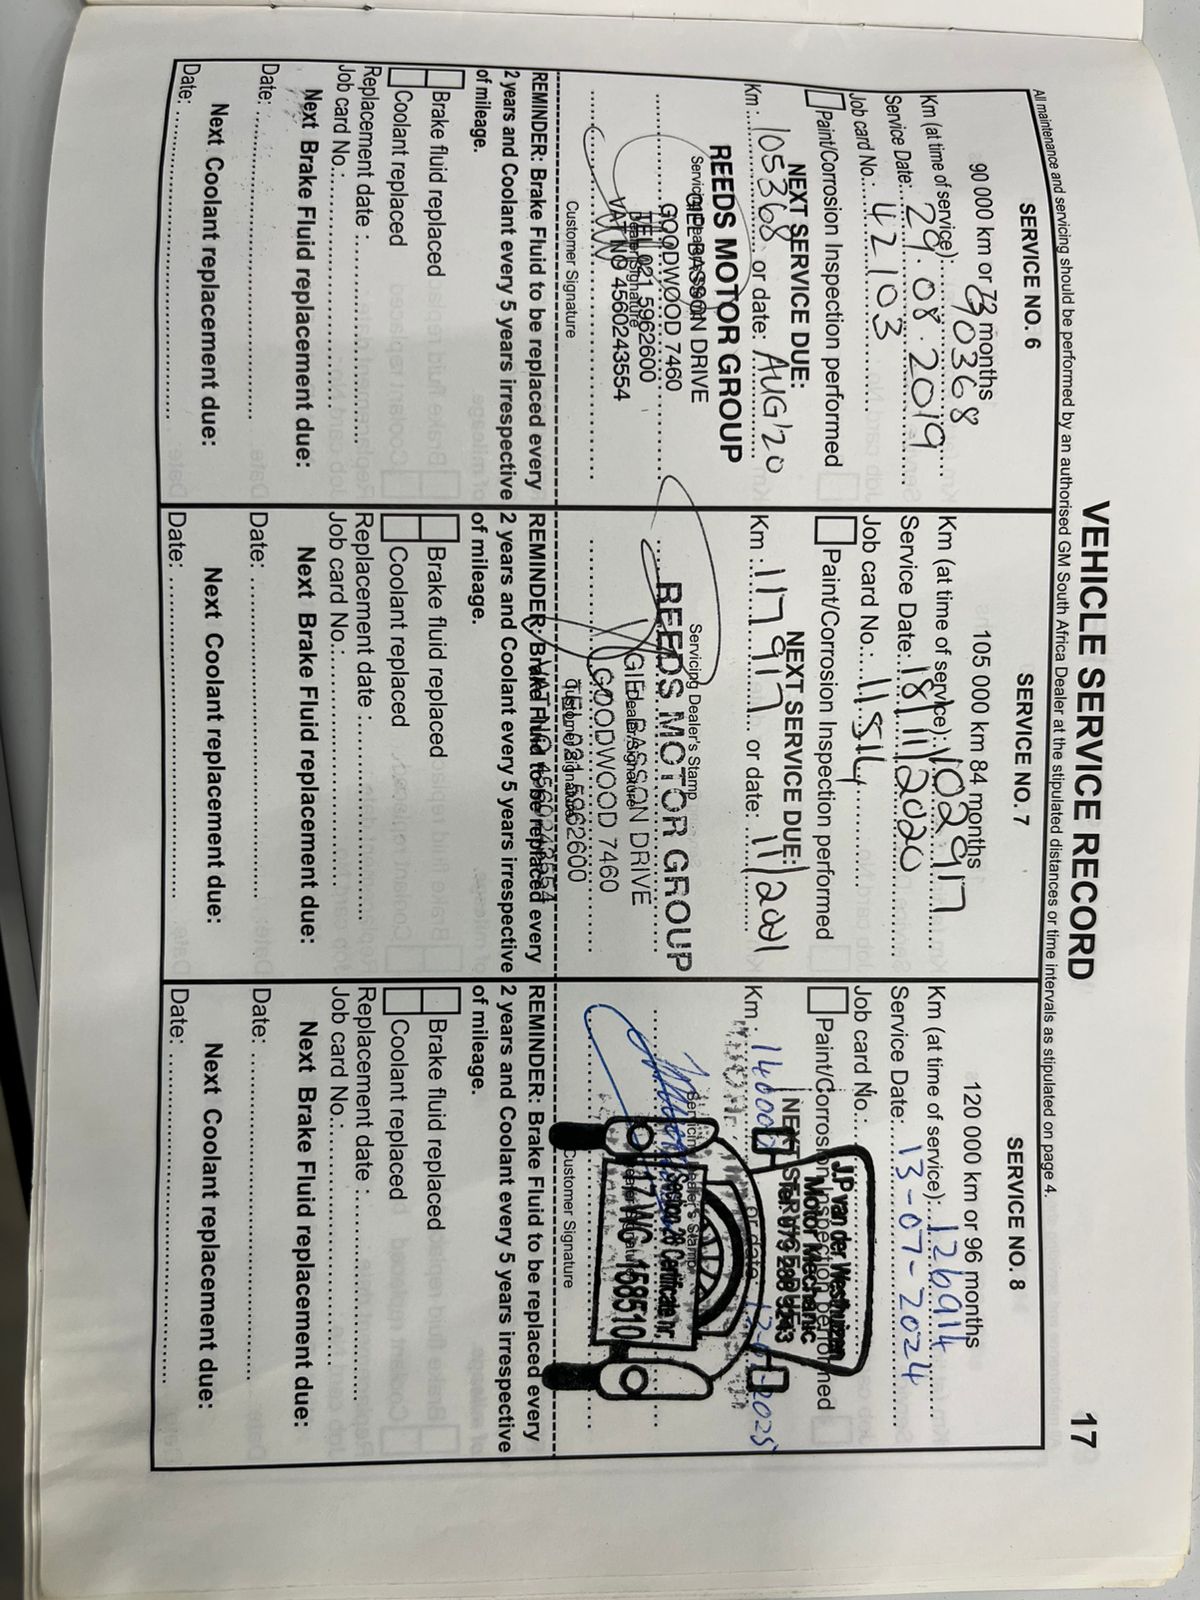 VEHICLE SERVICE RECORD 17
All maintenance and servicing should be performed by an authorised GM South Africa Dealer at the stipulated distances or time intervals as stipulated on page 4.
SERVICE NO. 6
90 000 km or 72 months
Km (at time of service): 90368
Service Date: 29.08.2019
Job card No.: 42103
Paint/Corrosion Inspection performed
NEXT SERVICE DUE:
Km: 105368 or date: AUG'20
REEDS MOTOR GROUP
Servicing Dealer's Stamp
GIE BASSON DRIVE
GOODWOOD 7460
TEL 021 5962600
Dealer Signature
VAT NO 4560243554
Customer Signature
REMINDER: Brake Fluid to be replaced every
2 years and Coolant every 5 years irrespective
of mileage.
Brake fluid replaced
Coolant replaced
Replacement date :
Job card No.:
Next Brake Fluid replacement due:
Date:
Next Coolant replacement due:
Date:
SERVICE NO. 7
105 000 km 84 months
Km (at time of service): 102917
Service Date: 18/11/2020
Job card No.: 11514
Paint/Corrosion Inspection performed
NEXT SERVICE DUE:
Km: 117917 or date: 11/2021
Servicing Dealer's Stamp
REEDS MOTOR GROUP
GIE BASSON DRIVE
Dealer Signature
GOODWOOD 7460
TEL 021 5962600
Customer Signature
VAT NO 4560243554
REMINDER: Brake Fluid to be replaced every
2 years and Coolant every 5 years irrespective
of mileage.
Brake fluid replaced
Coolant replaced
Replacement date :
Job card No.:
Next Brake Fluid replacement due:
Date:
Next Coolant replacement due:
Date:
SERVICE NO. 8
120 000 km or 96 months
Km (at time of service): 126914
Service Date: 13-07-2024
Job card No.:
J.P van der Westhuizen
Paint/Corrosion Inspection performed
Motor Mechanic
NEXT SERVICE DUE:
Km: 140000 or date:
Servicing Dealer's Stamp
Section 28 Certificate nr.
Dealer Signature
17 WC 158510
Customer Signature
REMINDER: Brake Fluid to be replaced every
2 years and Coolant every 5 years irrespective
of mileage.
Brake fluid replaced
Coolant replaced
Replacement date :
Job card No.:
Next Brake Fluid replacement due:
Date:
Next Coolant replacement due:
Date: